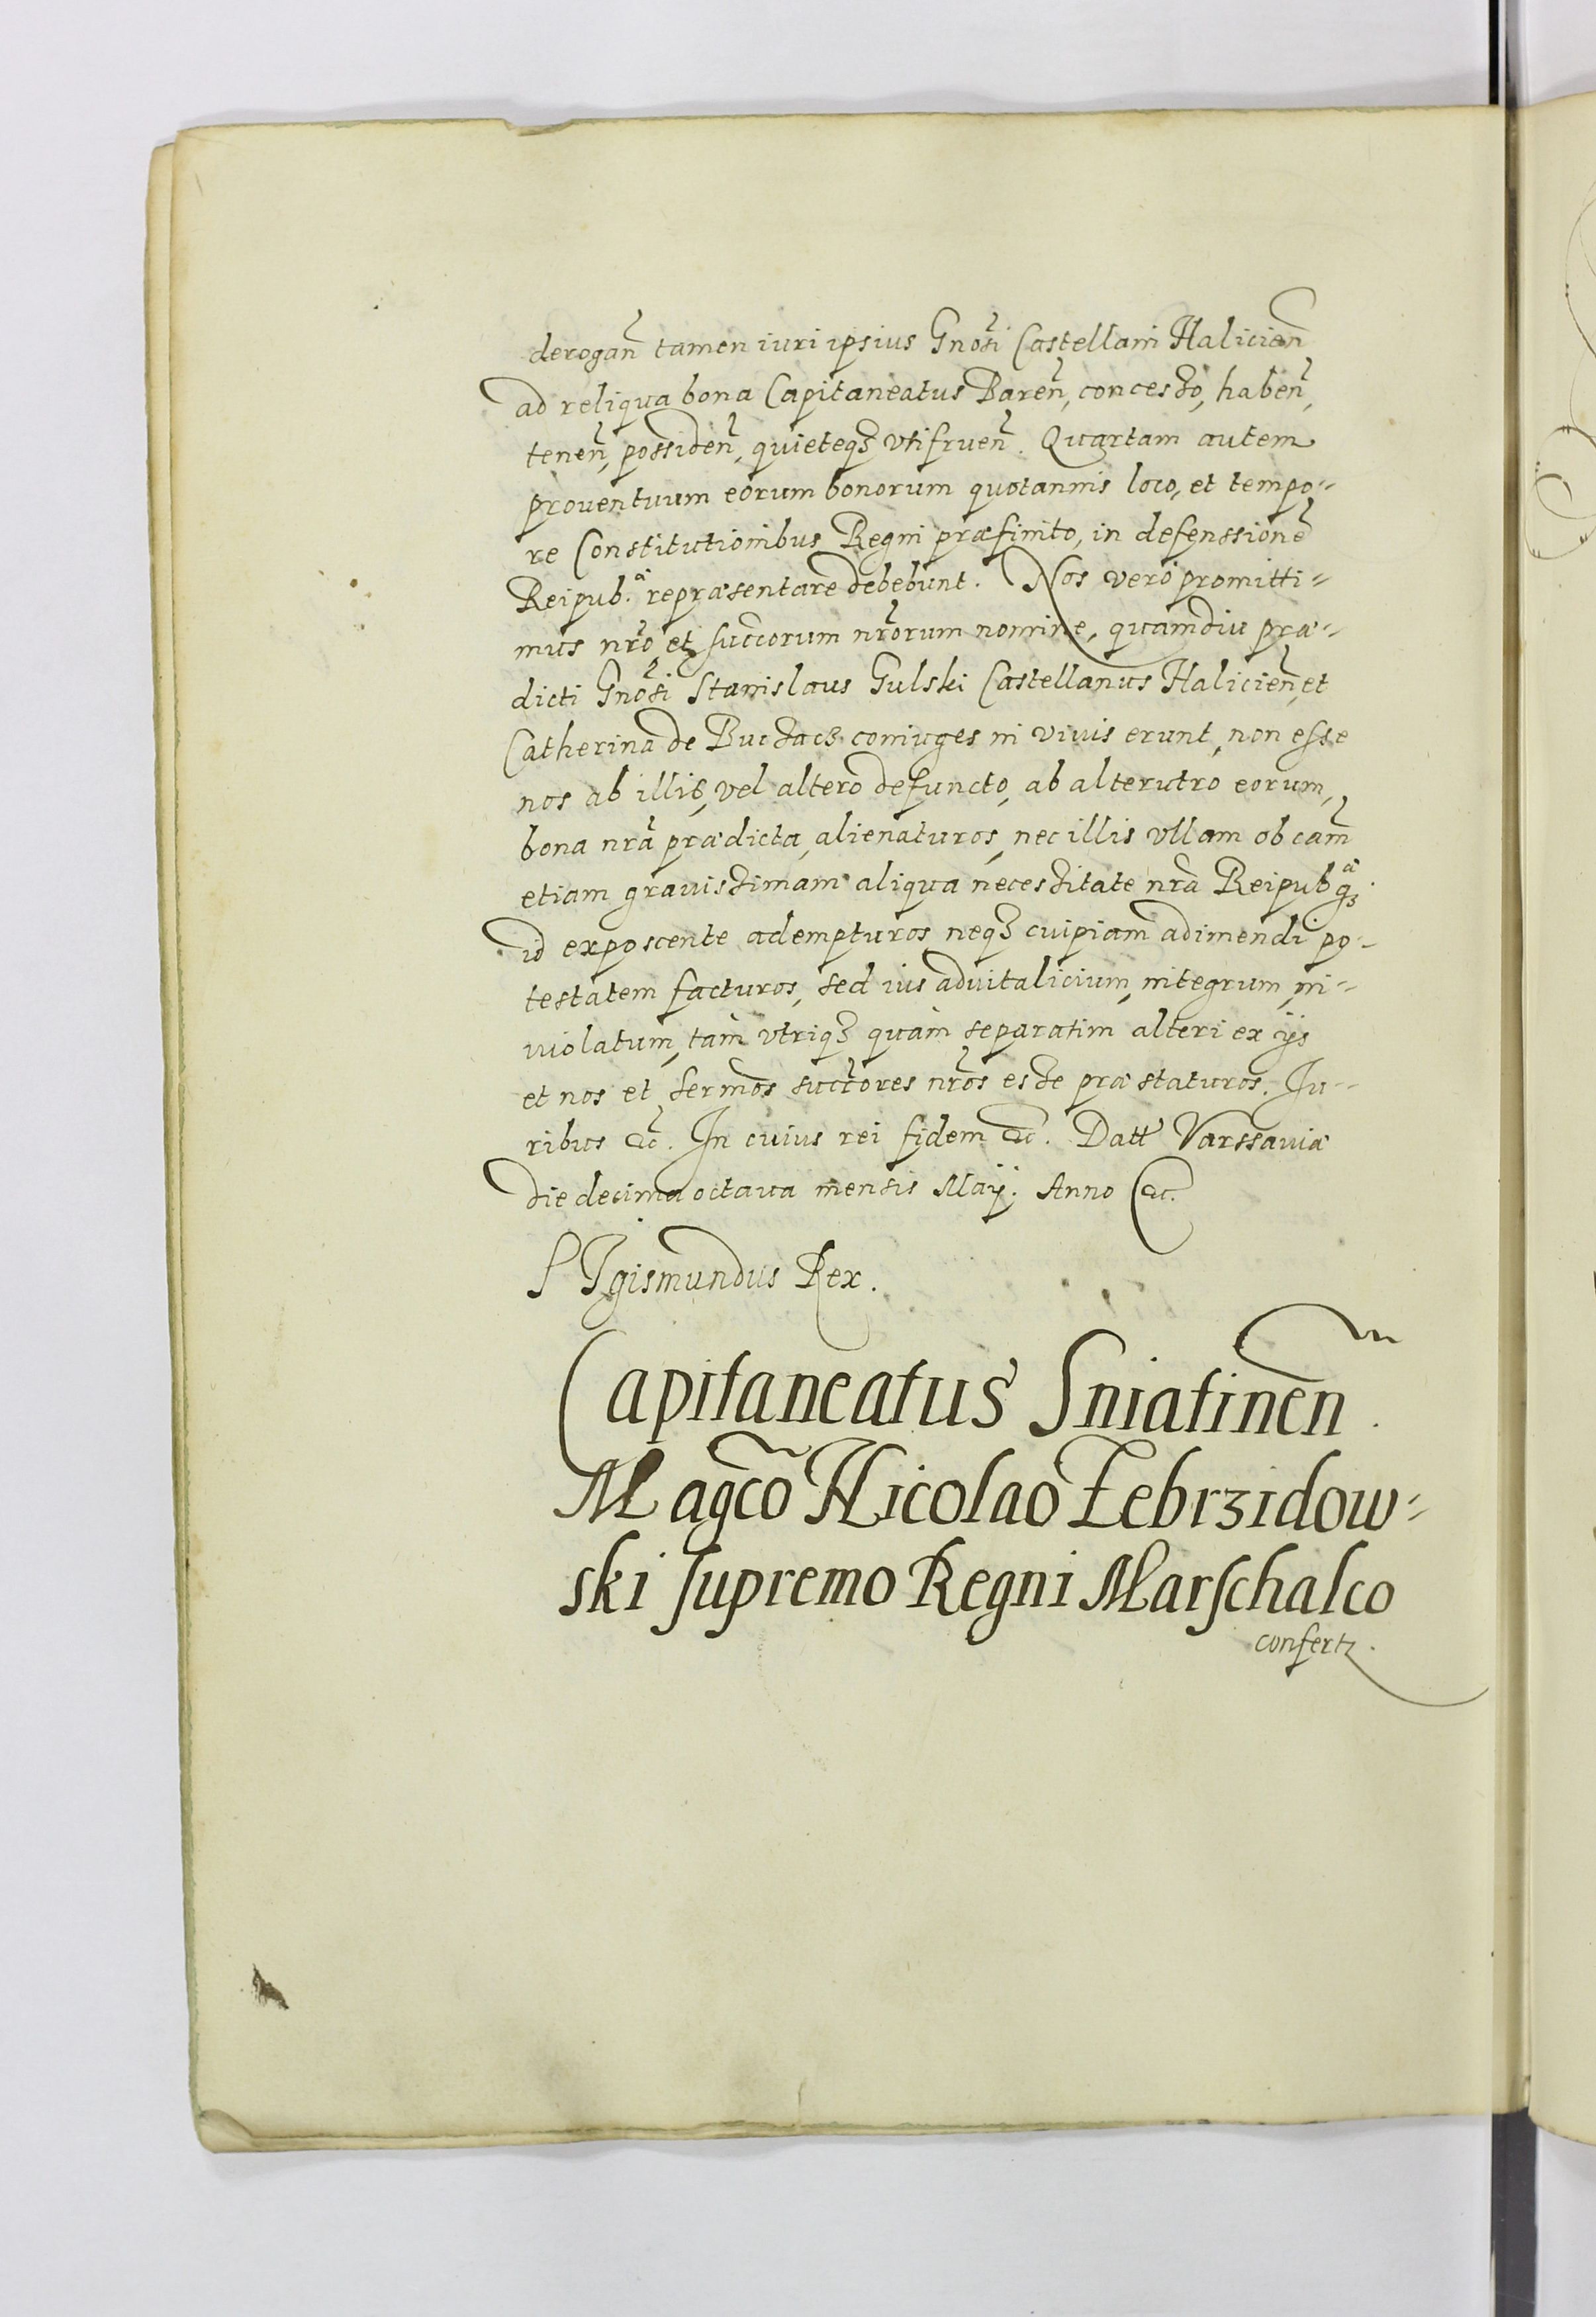 derogan̄ tamen iuri ipsius Gnōsi Castellani Halicien̄
ad reliqua bona Capitaneatus Baren̄, concesso, haben̄,
tenen̄, possiden̄, quieteqꝫ vtifruen̄. Quartam autem
prouentuum eorum bonorum quotannis loco, et tempo-
re Constitutionibus Regni præfinito, in defenssionē
Reipub.ᵃᵉ repræsentare debebunt. Nos vero promitti-
mus nr̄o et succorum nr̄orum nomine, quamdiu præ-
dicti Gnōsi Stanislaus Gulski Castellanus Halicien̄, et
Catherina de Buczacz coniuges in viuis erunt, non esse
nos ab illis, vel altero defuncto, ab alterutro eorum,
bona nr̄a prædicta, alienaturos, nec illis vllam ob cam̄
etiam grauissimam aliqua necessitate nr̄a Reipubᵃᵉqꝫ.
id exposcente adempturos neqꝫ cuipiam adimendi po-
testatem facturos, sed ius aduitalicium, integrum, in-
uiolatum, tam vtriqꝫ quam separatim alteri ex ijs
et nos et sermōs succōres nr̄os esse præstaturos. Iu-
ribus &c. In cuius rei fidem &c. Datt Varssauiæ
die decima octaua mensis Maÿ. Anno &c.
SIgismundus Rex.
Capitaneatus Sniatinen̄.
Magc̄o Nicolao Zebrzidow-
ski supremo Regni Marschalco
confertꝛ.